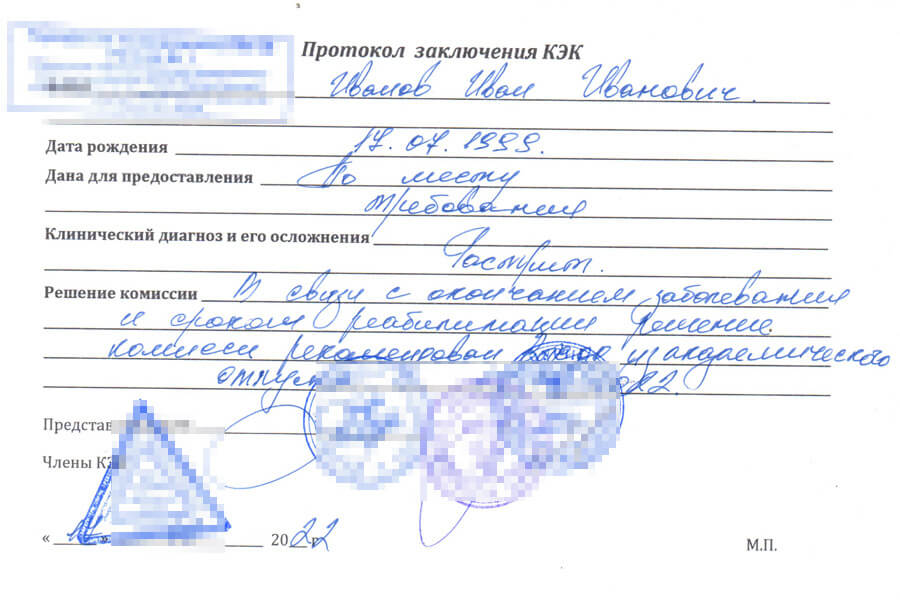 Протокол заключения КЭК
Иванов Иван Иванович.
Дата рождения 17.07.1999.
Дана для предоставления По месту
требования
Клинический диагноз и его осложнения
Гастрит.
Решение комиссии В связи с окончанием заболевания
и сроком реабилитации Решение
комисси рекомендован из академического
отпус
Представ
Члены К
« » 2022 г
М.П.